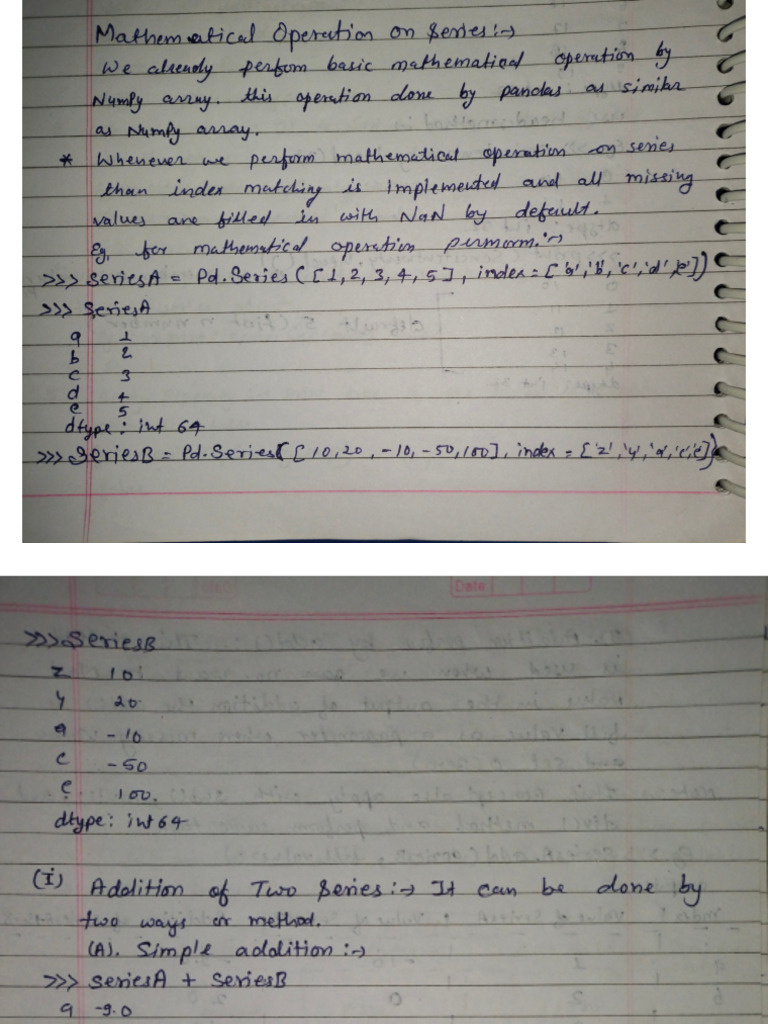 Mathematical Operation on Series:→
We already perform basic mathematical operation by
NumPy array. this operation done by pandas as similar
as NumPy array.
* Whenever we perform mathematical operation on series
than index matching is implemented and all missing
values are filled in with NaN by default.
Eg. for mathematical operation permorm.:→
>>> SeriesA = Pd.Series([1,2,3,4,5], index=['a','b','c','d','e'])
>>> SeriesA
a 1
b 2
c 3
d 4
e 5
dtype: int 64
>>> SeriesB = Pd.Series([10,20,-10,-50,100], index=['z','y','a','c','e'])
Date
>>> SeriesB
z 10
y 20
a -10
c -50
e 100.
dtype: int64
(I) Addition of Two Series:→ It can be done by
two ways or method.
(A). Simple addition:→
>>> seriesA + seriesB
a -9.0